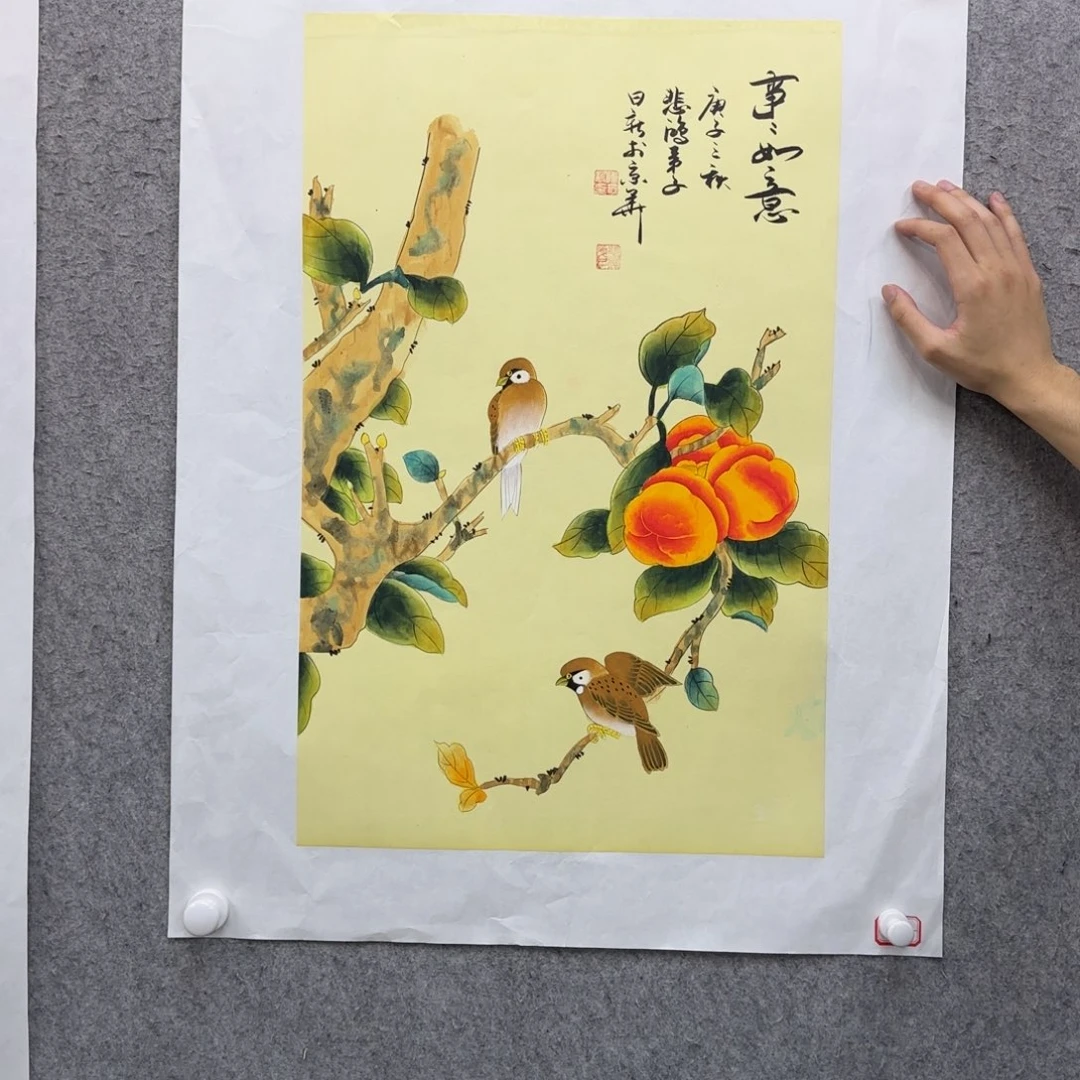 事〻如意
庚子之秋
悲鸿弟子
日新於京華